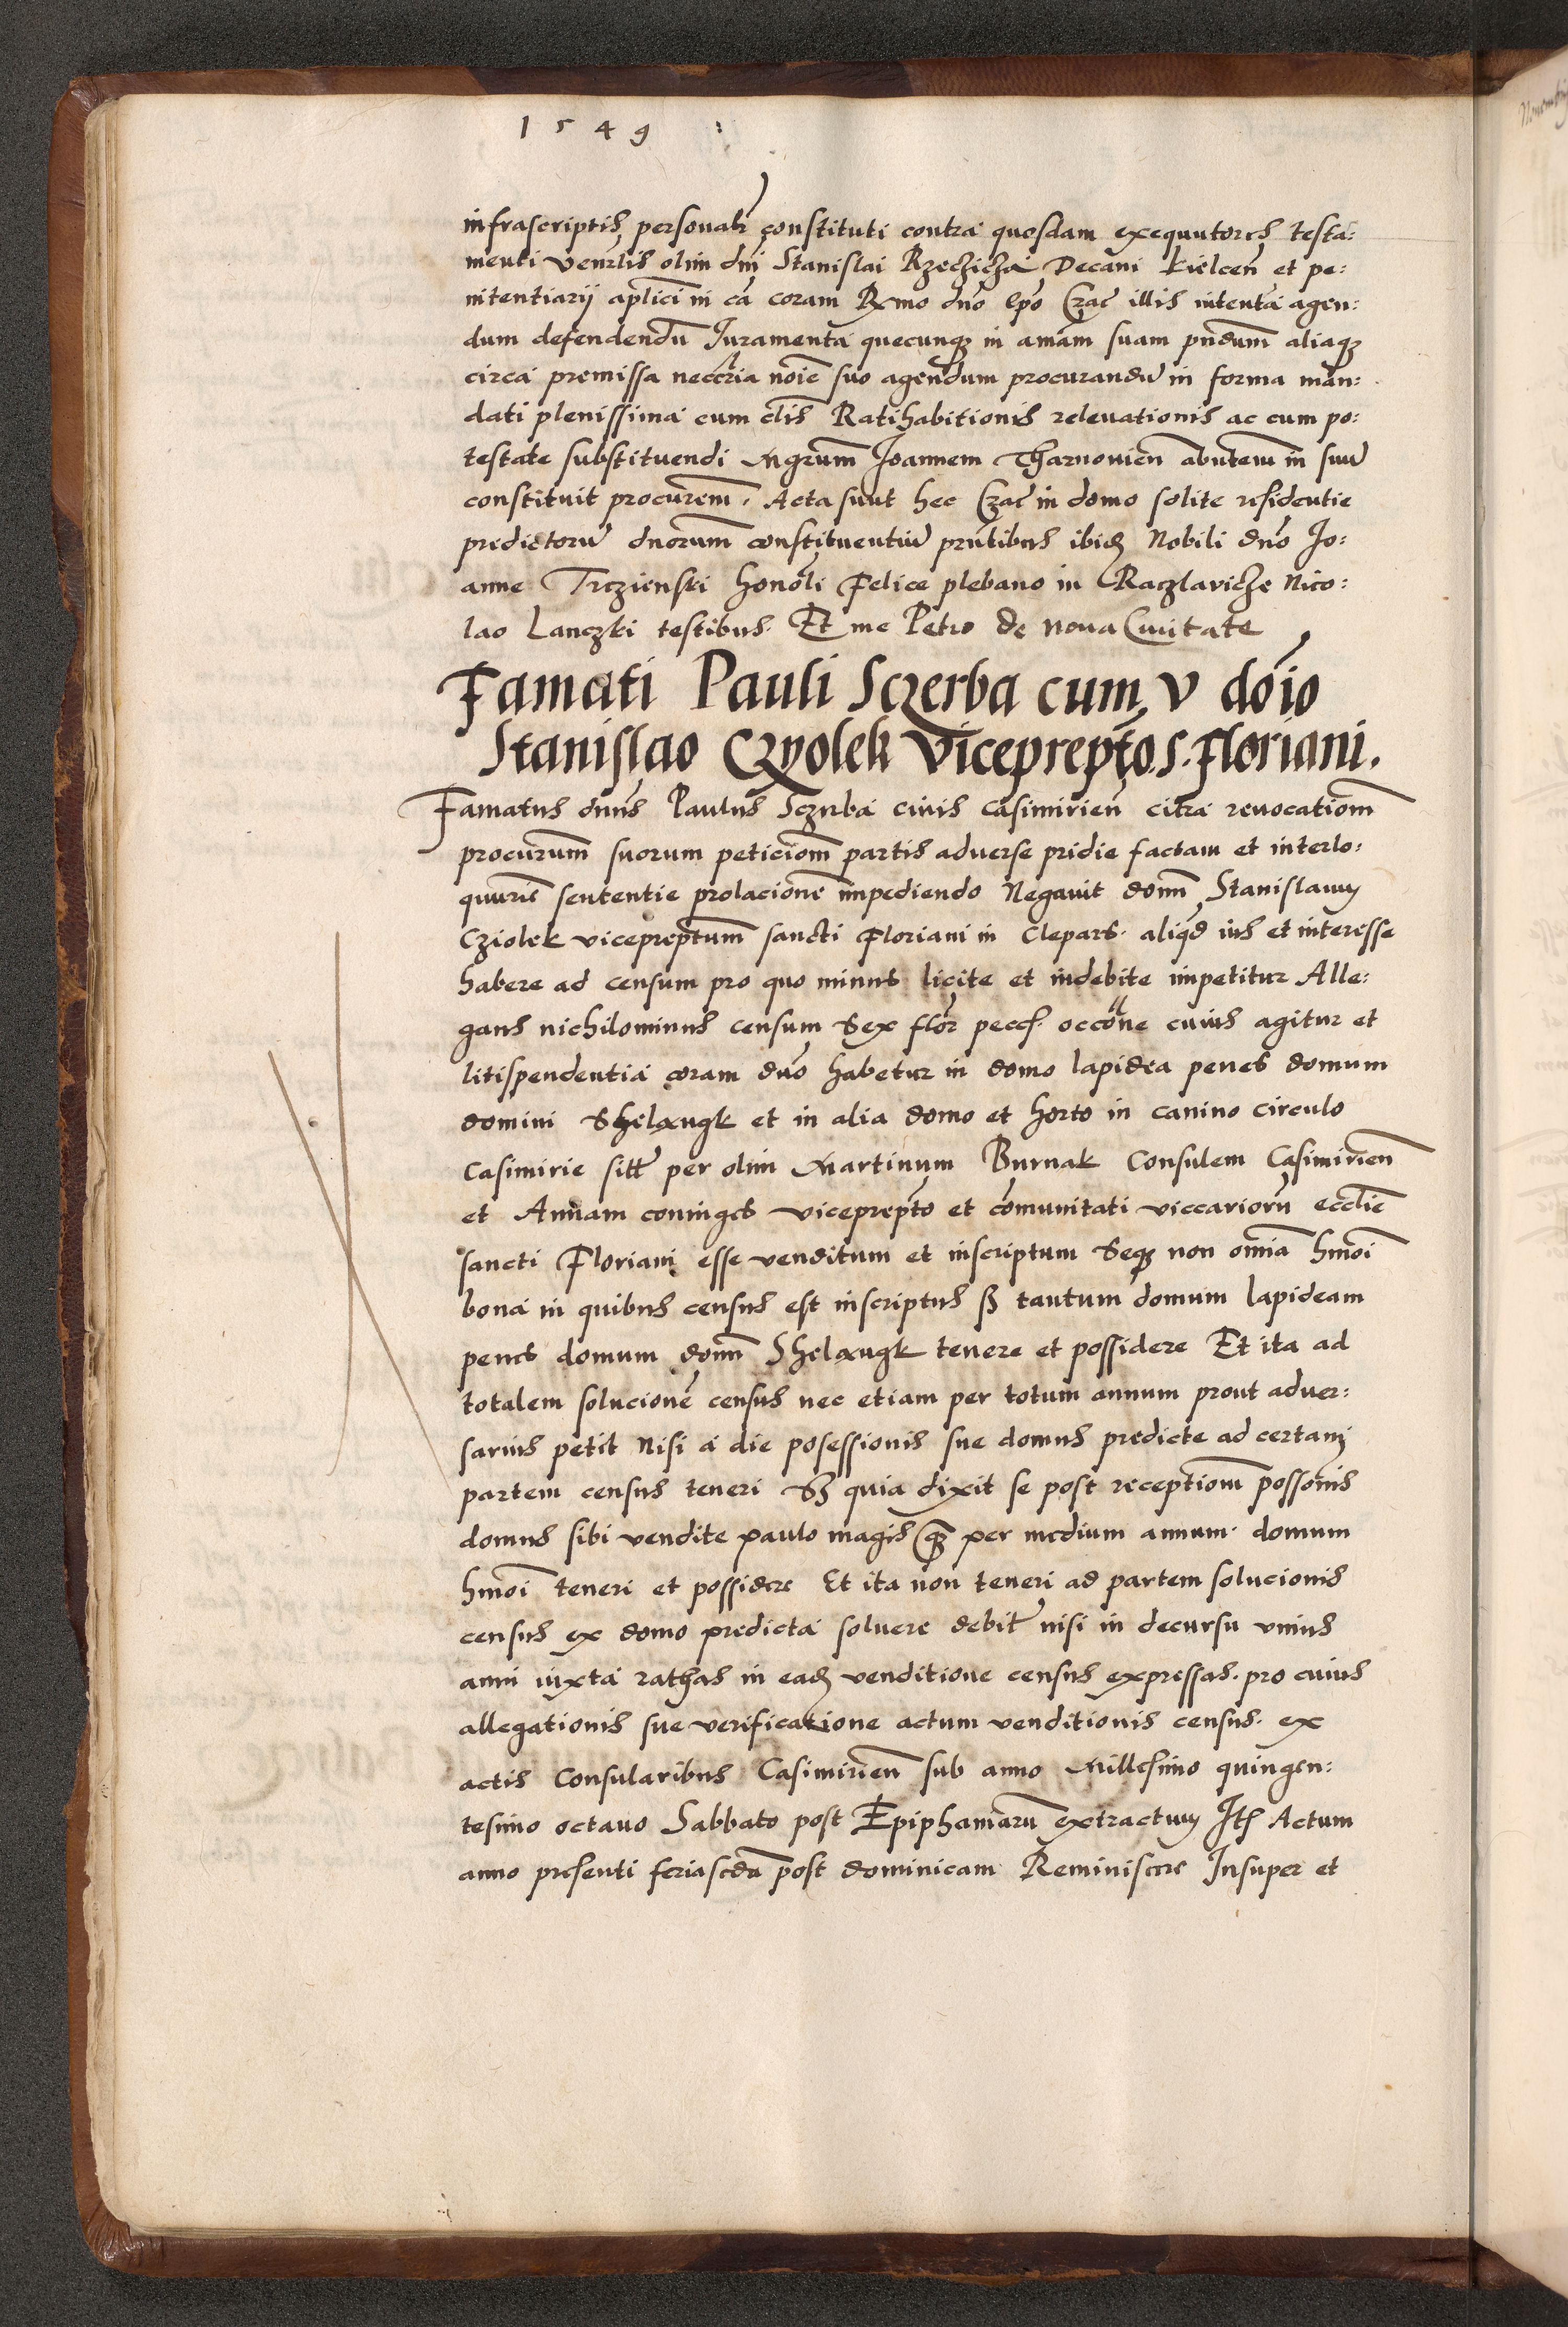 1549
infrascriptis personalr̄ constituti contra quosdam exequutores testa:
menti venrlis olim dnī Stanislai Rzeczicza Decani Kielcen̄ et pe:
nitentiarij aplici in cā coram Rxmo dnō epō Crac̄ illis intenta agen:
dum defendendū Juramenta quecunqꝫ in amām suam prndum̄ aliaqꝫ
circa premissa neccria noīe suo agendum procurandū in forma man:
dati plenissima cum clis̄ Ratihabitionis relevationis ac cum po:
testate substituendi Mgrum̄ Joannem Tharnovien̄ abntem̄ in suū
constituit procurem̄. Acta sunt hec Crac̄ in domo solite residentie
predictorū dnorum̄ constituentiū prntibus ibidꝫ Nobili dnō Jo:
anne Trczienski honōli Felice plebano in Raczlavicze Nico:
lao Lanczki testibus. Et me Petro de nova Civitate
Famati Pauli Sczerba cum v doīo
Stanislao Czyolek viceprepto S. Floriani.
Famatus dnūs Paulus Sczerba civis casimirien̄ citra revocatiom̄
procurum̄ suorum peticiom̄ partis adverse pridie factam et interlo:
qutrie sententie prolacionē impediendo Negavit dom̄ Stanislaum
Cziolek viceprepotum̄ sancti Floriani in Clepars. aliqd ius et interesse
habere ad censum pro quo minus licite et indebite impetitur Alle:
gans nichilominus censum Sex flor̄ pecc. occōne cuius agitur et
litispendentia coram dnō habetur in domo lapidea penes domum
domini Shelaxugk et in alia domo et horto in canino circulo
Casimirie sitt̄ per olim Martinum Burnak Consulem Casimirien̄
et Annam coniuges viceprepto et cōmunitati viccariorū ecclīe
sancti Floriani esse venditum et inscriptum Seqꝫ non omīa hmoī
bona in quibus census est inscriptus sꝫ tantum domum lapideam
penes domum dom̄ Shelaxugk tenere et possidere Et ita ad
totalem solucionē census nec etiam per totum annum prout adver:
sarius petit Nisi a die posessionis sue domus predicte ad certam
partem census teneri Sꝫ quia dixit se post receptiom̄ possonīs
domus sibi vendite paulo magis qꝫ per medium annum. domum
hmoī teneri et possidere Et ita non teneri ad partem solucionis
census ex domo predicta solvere debit̄ nisi in decursu unius
anni iuxta rathas in eadꝫ venditione census expressas. pro cuius
allegationis sue verificatione actum venditionis census. ex
actis Consularibus Casimirien̄ sub anno Millesimo quingen:
tesimo octavo Sabbato post Epiphaniarū extractum Itꝫ Actum
anno presenti feria scda post dominicam Reminiscere Insuper et